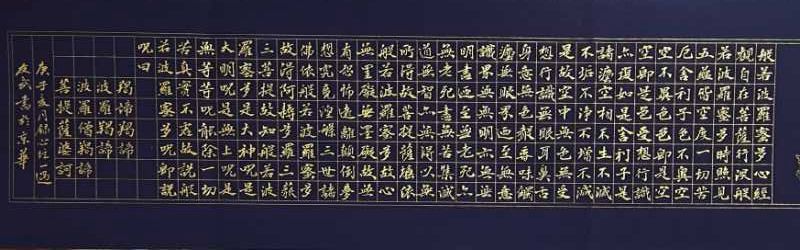 般若波羅蜜多心經
觀自在菩薩行深般
若波羅蜜多時照見
五蘊皆空度一切苦
厄舍利子色不異空
空不異色色即是空
空即是色受想行識
亦復如是舍利子是
諸法空相不生不滅
不垢不淨不增不減
是故空中無色無受
想行識無眼耳鼻舌
身意無色聲香味觸
法無眼界乃至無意
識界無無明亦無無
明盡乃至無老死亦
無老死盡無苦集滅
道無智亦無得以無
所得故菩提薩埵依
般若波羅蜜多故心
無罣礙無罣礙故無
有恐怖遠離顛倒夢
想究竟涅槃三世諸
佛依般若波羅蜜多
故得阿耨多羅三藐
三菩提故知般若波
羅蜜多是大神咒是
大明咒是無上咒是
無等等咒能除一切
苦真實不虛故說般
若波羅蜜多咒即說
咒曰
羯諦羯諦
波羅羯諦
波羅僧羯諦
菩提薩婆訶
庚子亥月錄心經一過
書於京華